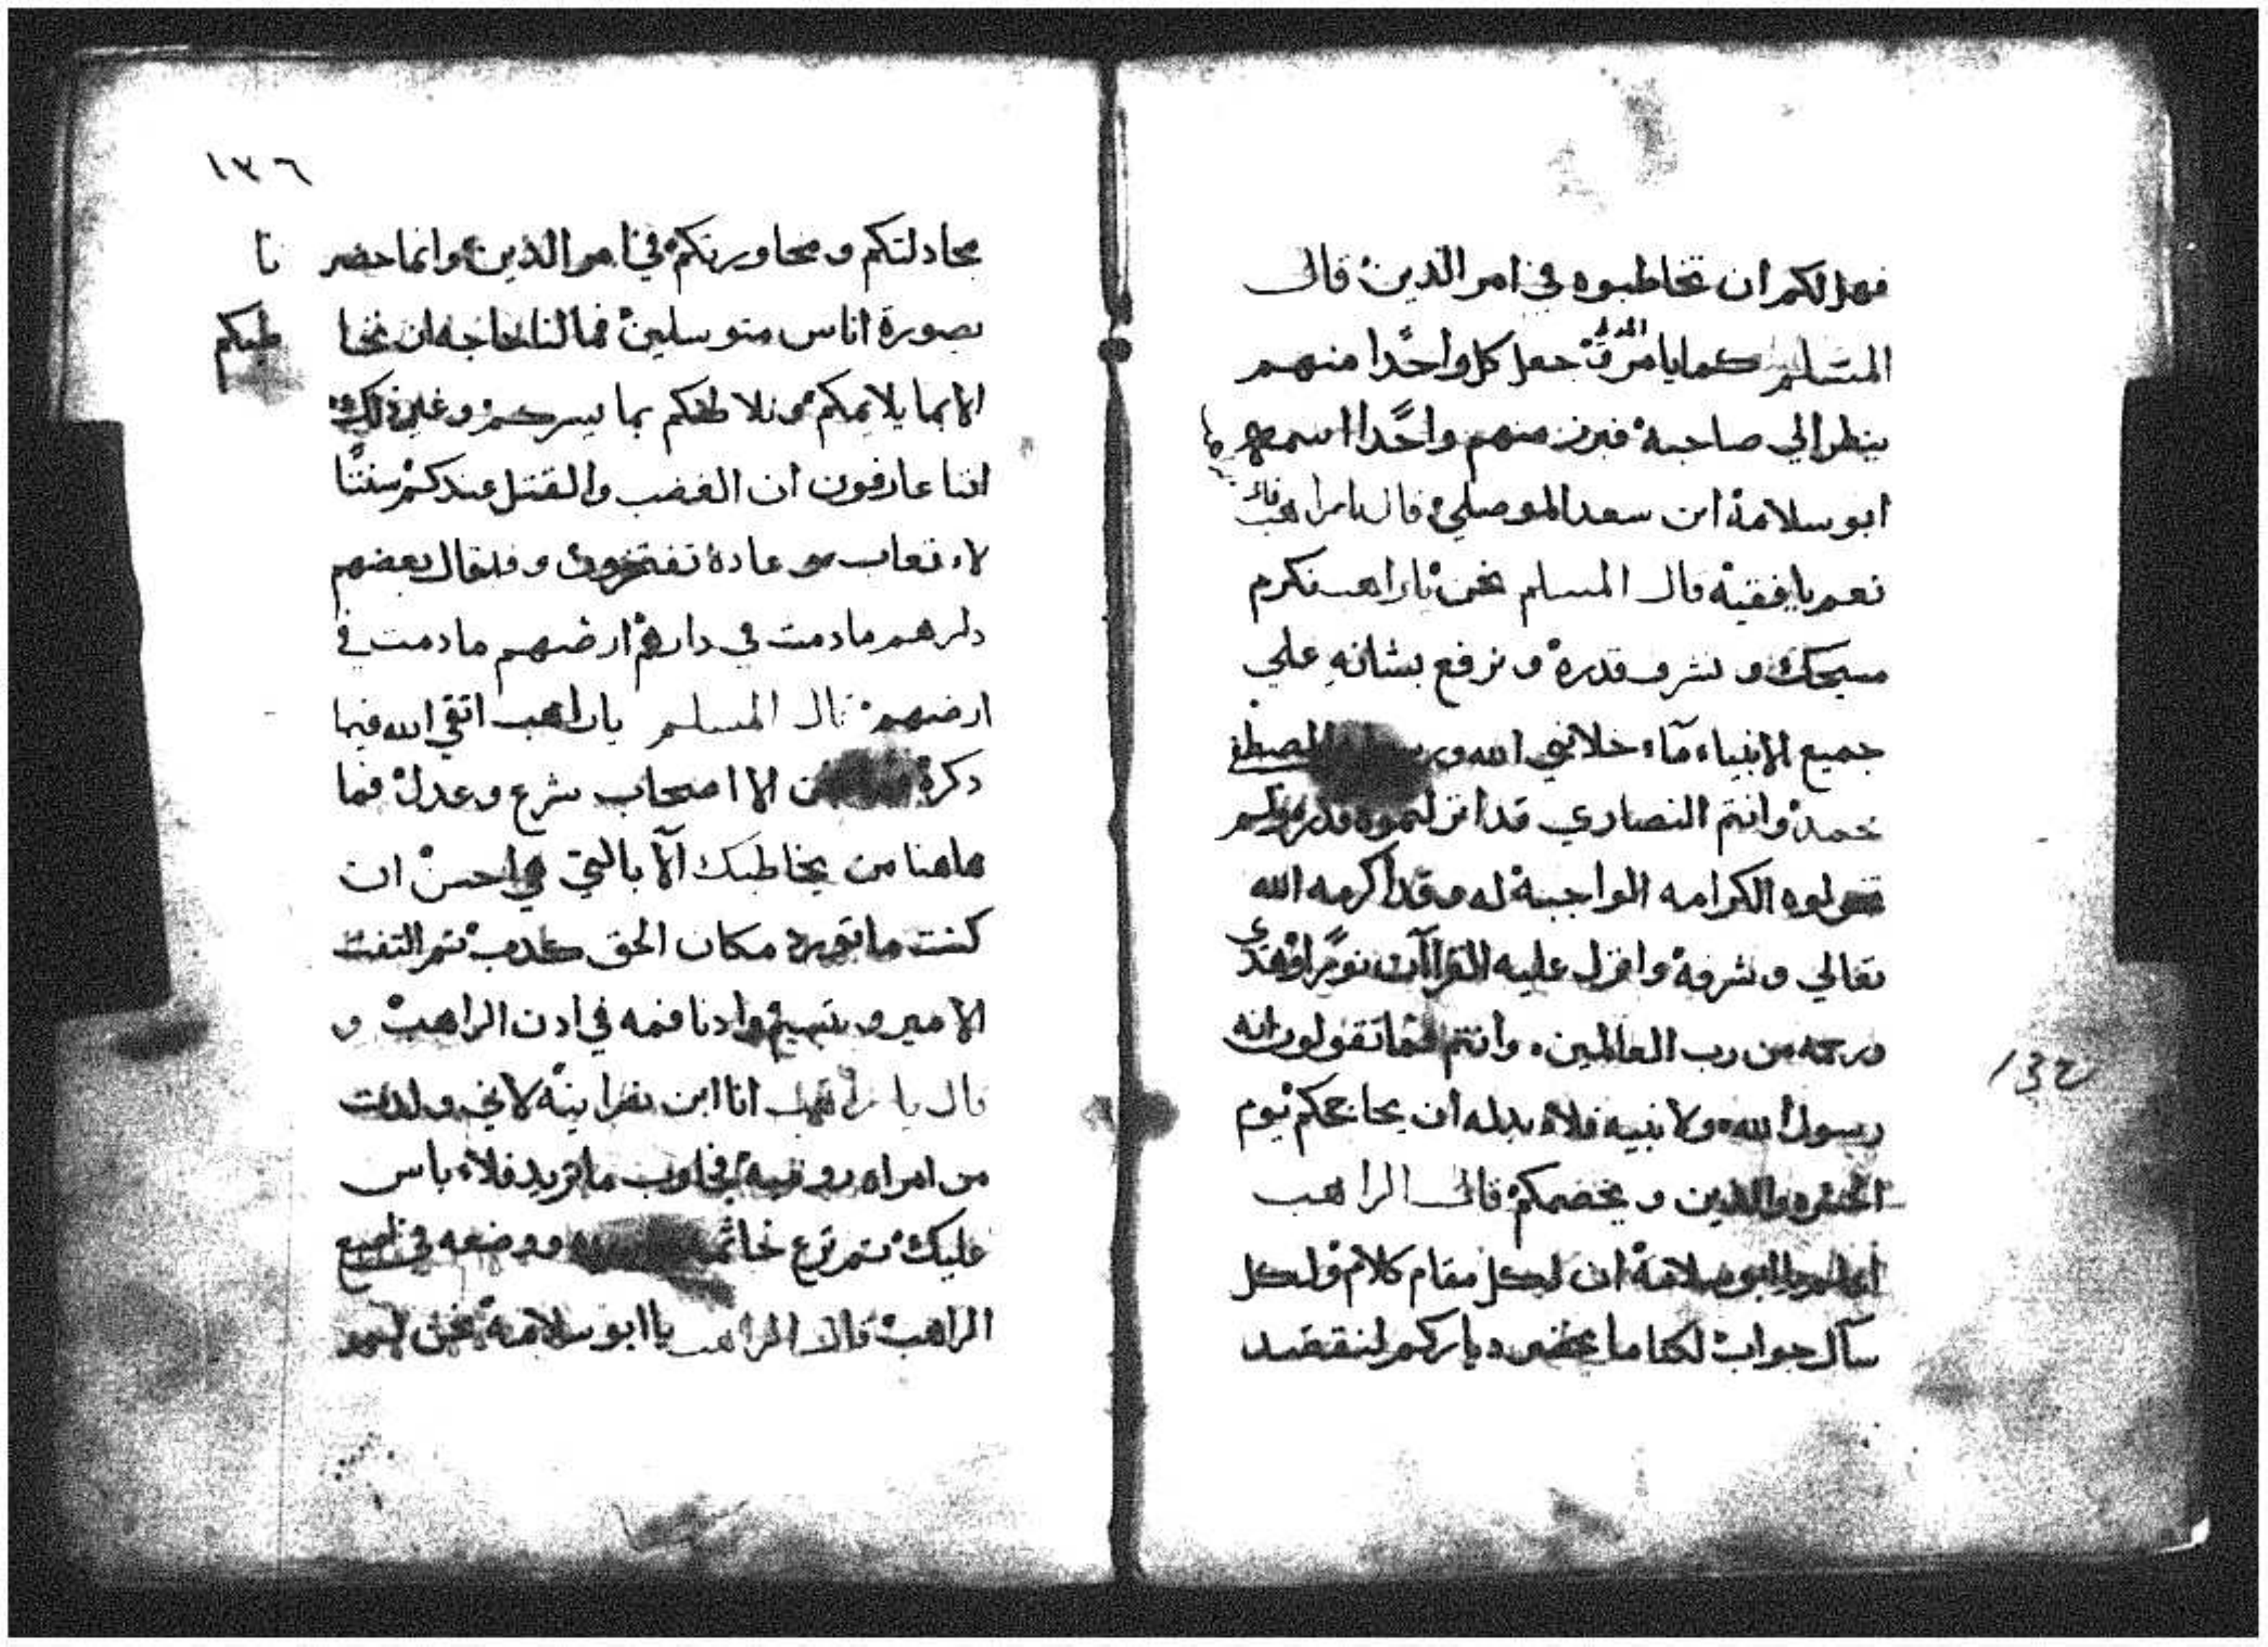 فهل لكم ان تخاطبوه في امر الدين قال
المسلم كما يامر جعل كل واحدا منهم
ينظر الي صاحبه فبرز منهم واحدا اسمه
ابو سلامة ابن سعد الموصلي قال يا راهب قال
نعم يا فقيه قال المسلم نحن يا راهب نكرم
مسيحك و نشرف قدره و نرفع بشانه علي
جميع الانبياء ماء خلا نبي الله و المصطفى
محمد وانتم النصاري قد انزلتموه
الكرامه الواجبة له وقد اكرمه الله
تعالي و شرفه وانزل عليه القراآن نورا وهدى
ورحمه من رب العالمين وانتم تقولون انه
رسول الله ولا نبيه فلاء بد له ان يحاججكم يوم
والدين و يخصمكم قال الراهب
ابو سلامة ان لكل مقام كلام ولكل
سآل جواب لكنا ما بحضر دياركم لنقصد
١٣٦
مجادلتكم و محاورتكم في امر الدين وانما حضرنا
بصورة اناس متوسلين فما لنا حاجه ان نخاطبكم
الا بما يلايمكم و نلاطفكم بما يسركم وغير ذلك
اننا عارفون ان الغضب والقتل عندكم سنتا
لاء تعاب و عادة تفتخرون و قد قال بعضهم
دارهم ما دمت في دارهم ارضهم ما دمت في
ارضهم قال المسلم يا راهب اتقي الله فيما
دكرة الا اصحاب شرع وعدل فما
هاهنا من يخاطبك آلا بالتي هي احسن ان
كنت ما تورد مكان الحق كدب تم التفت
الامير و تبسم وادنا فمه في ادن الراهب و
قال يا راهب انا ابن نصرانية لاني ولدت
من امراه روميه فجاوب ما تريد فلاء باس
عليك تم نزع خاتمه ووضعه في اصبع
الراهب قال الراهب يا ابو سلامة نحن